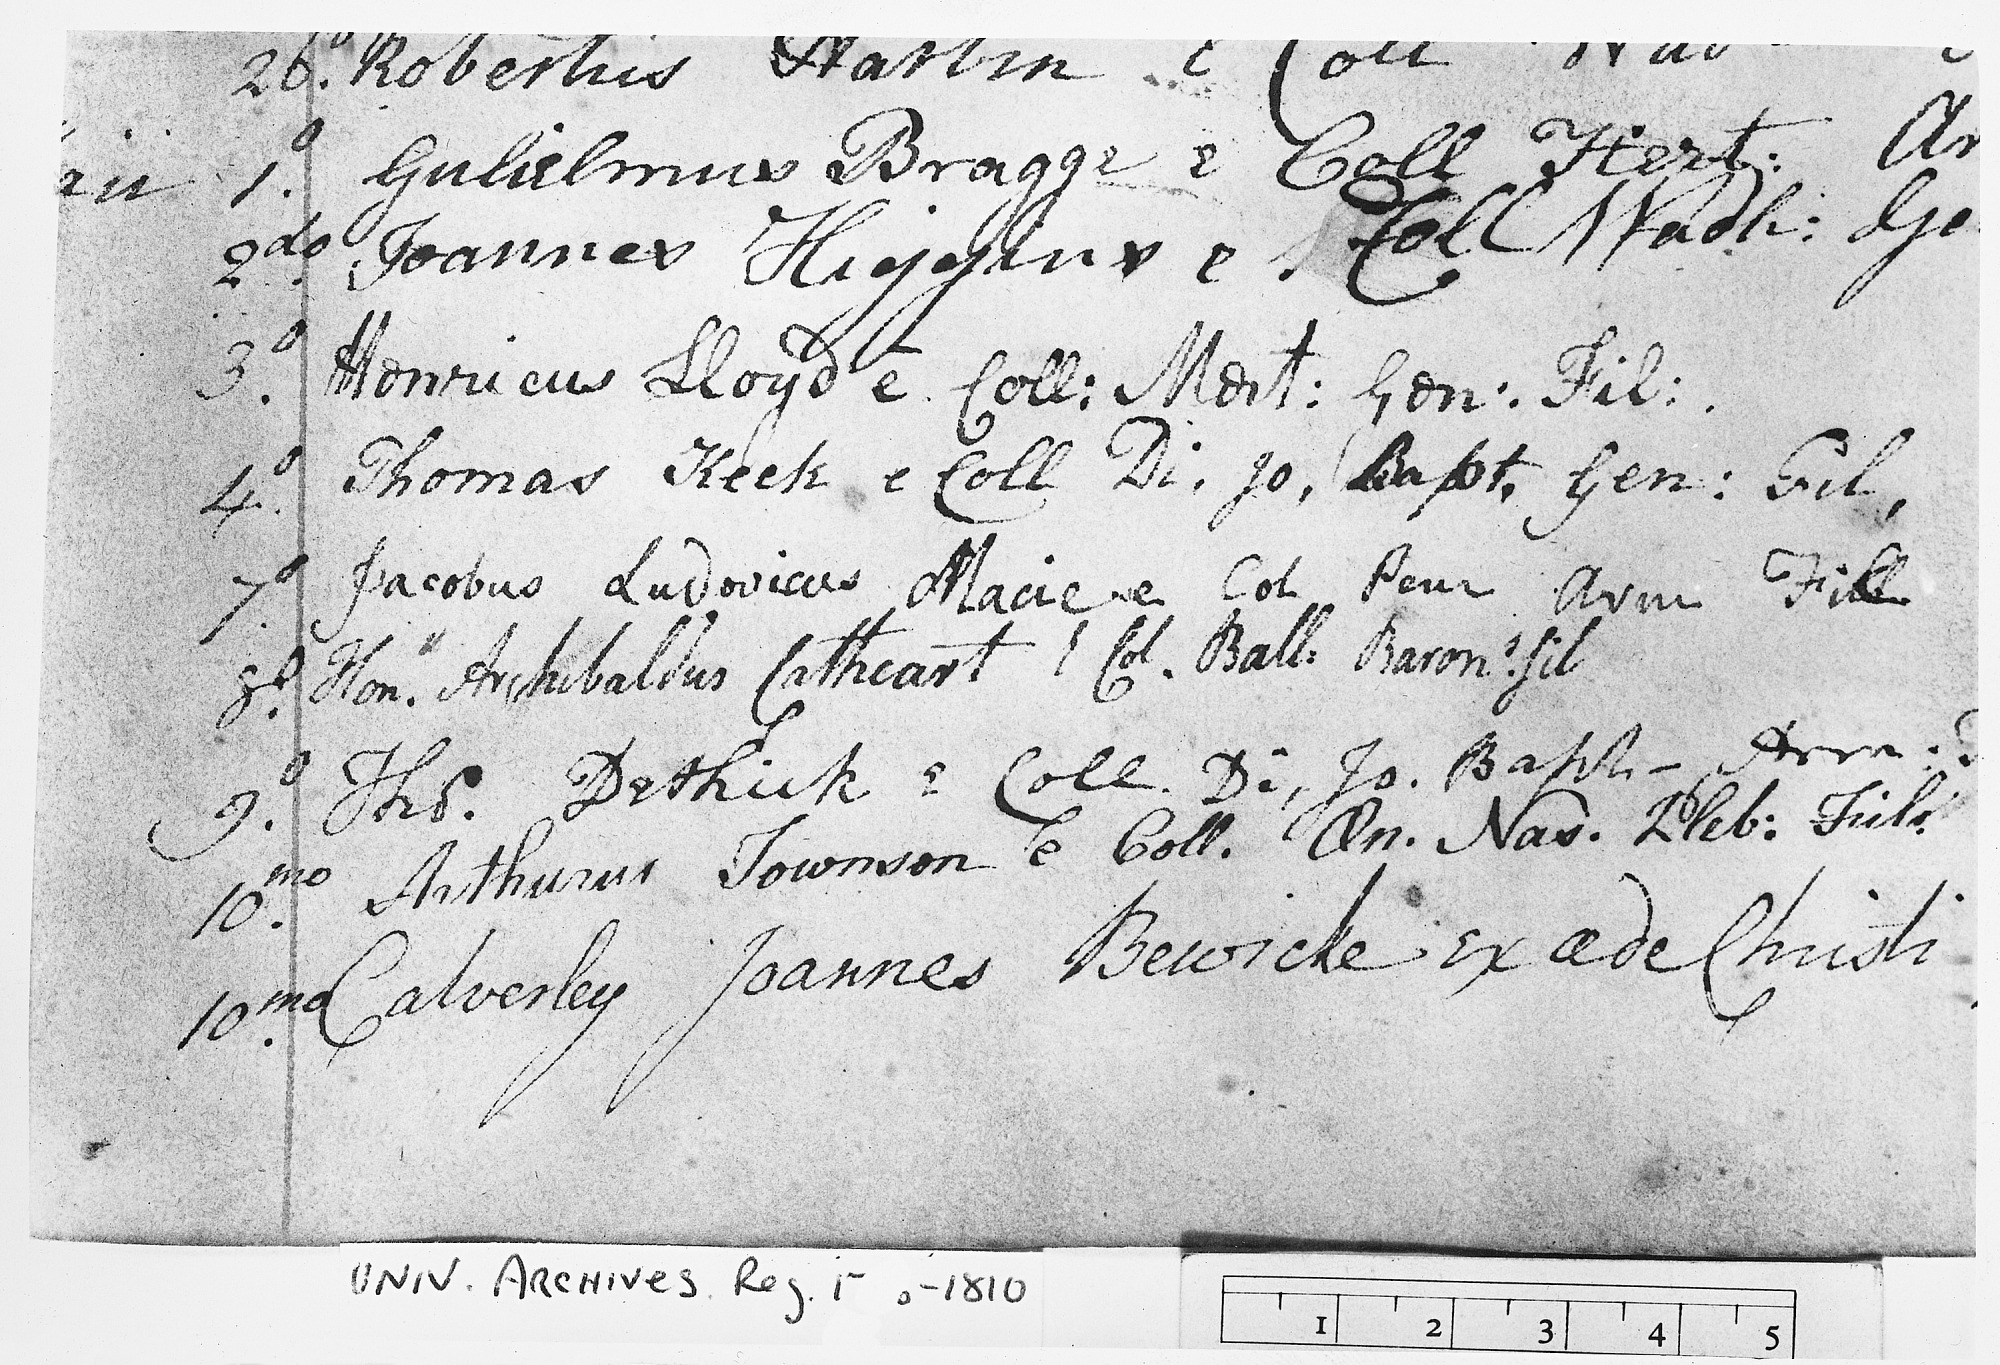 26º. Robertus Martin e Coll
aii 1º. Gulielmus Bragge e Coll Hert: Ar
2do. Joannes Higgins e Coll Wadh: Ge
3º. Henricus Lloyd e Coll: Mert: Gen: Fil:.
4º. Thomas Keck e Coll Di, Jo, Bapt, Gen: Fil,
7º. Jacobus Ludovicus Macie e Col Pem Arm Fill
8º. Hon. Archibaldus Cathcart e Col. Ball: Baron: fil
9º. Tho. Dethick e Coll. Di, Jo. Bapt- Arm: F
10mo. Arthurus Townson e Coll. Æn. Nas. Pleb: Fil:
10mo. Calverley Joannes Bewicke ex æde Christi
UNIV. ARCHIVES. Reg. -1810
1 2 3 4 5